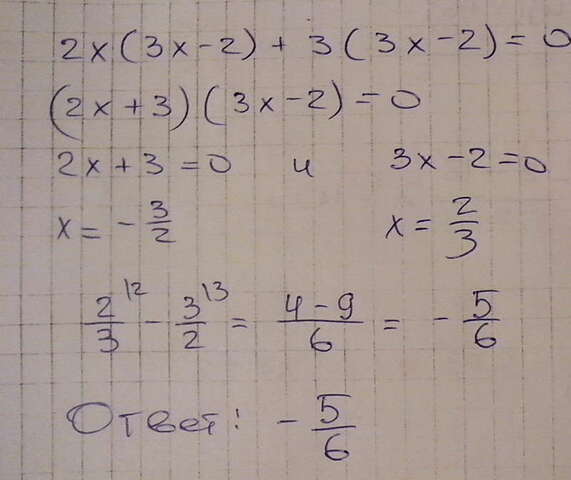 2x(3x-2)+3(3x-2)=0
(2x+3)(3x-2)=0
2x+3=0 и 3x-2=0
x=-3/2 x=2/3
2/3 \2 - 3/2 \3 = (4-9)/6 = -5/6
Ответ: -5/6